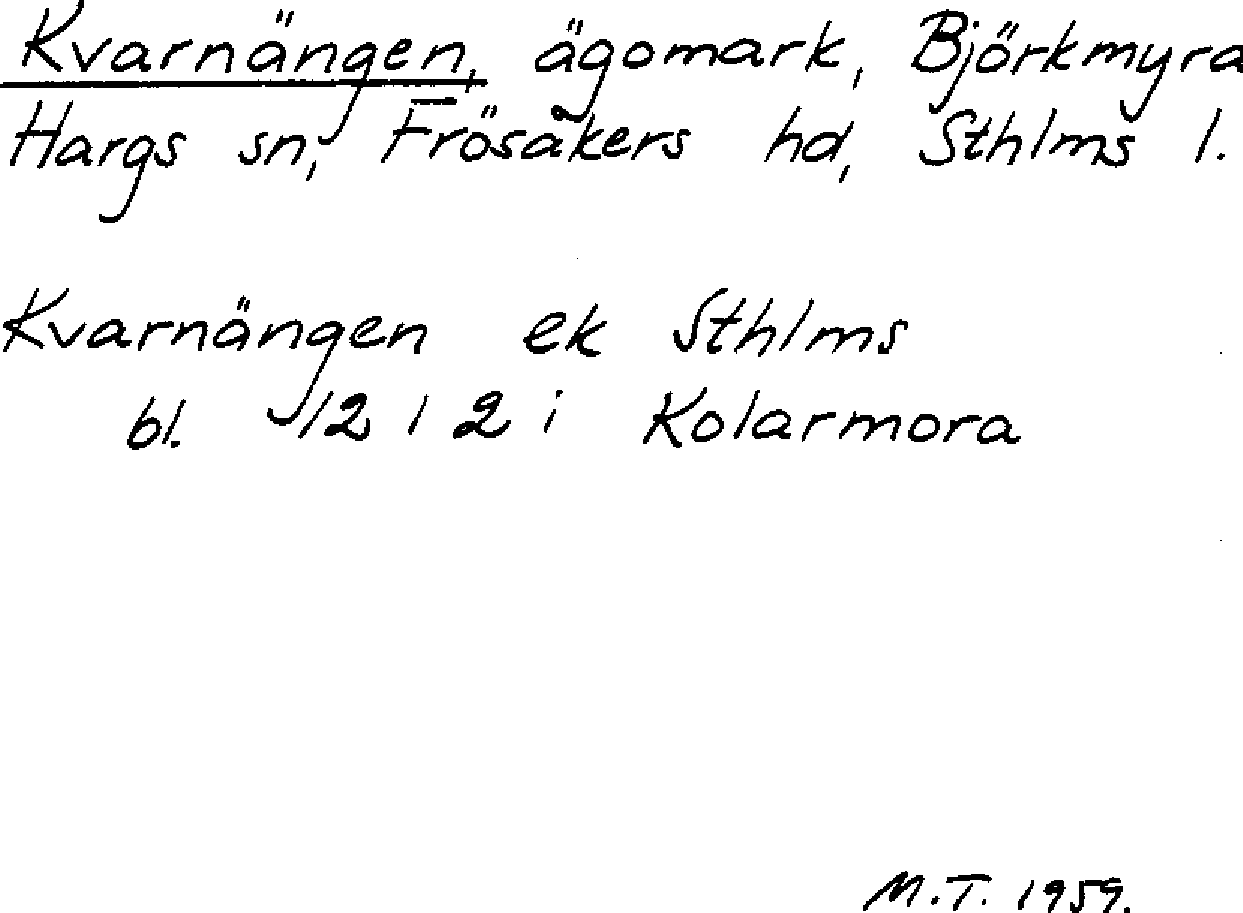 Kvarnängen, ägomark, Björkmyra
Hargs sn, Frösåkers hd, Sthlms l.
Kvarnängen ek Sthlms
bl. 12 1 2 i Kolarmora
M.T. 1959.